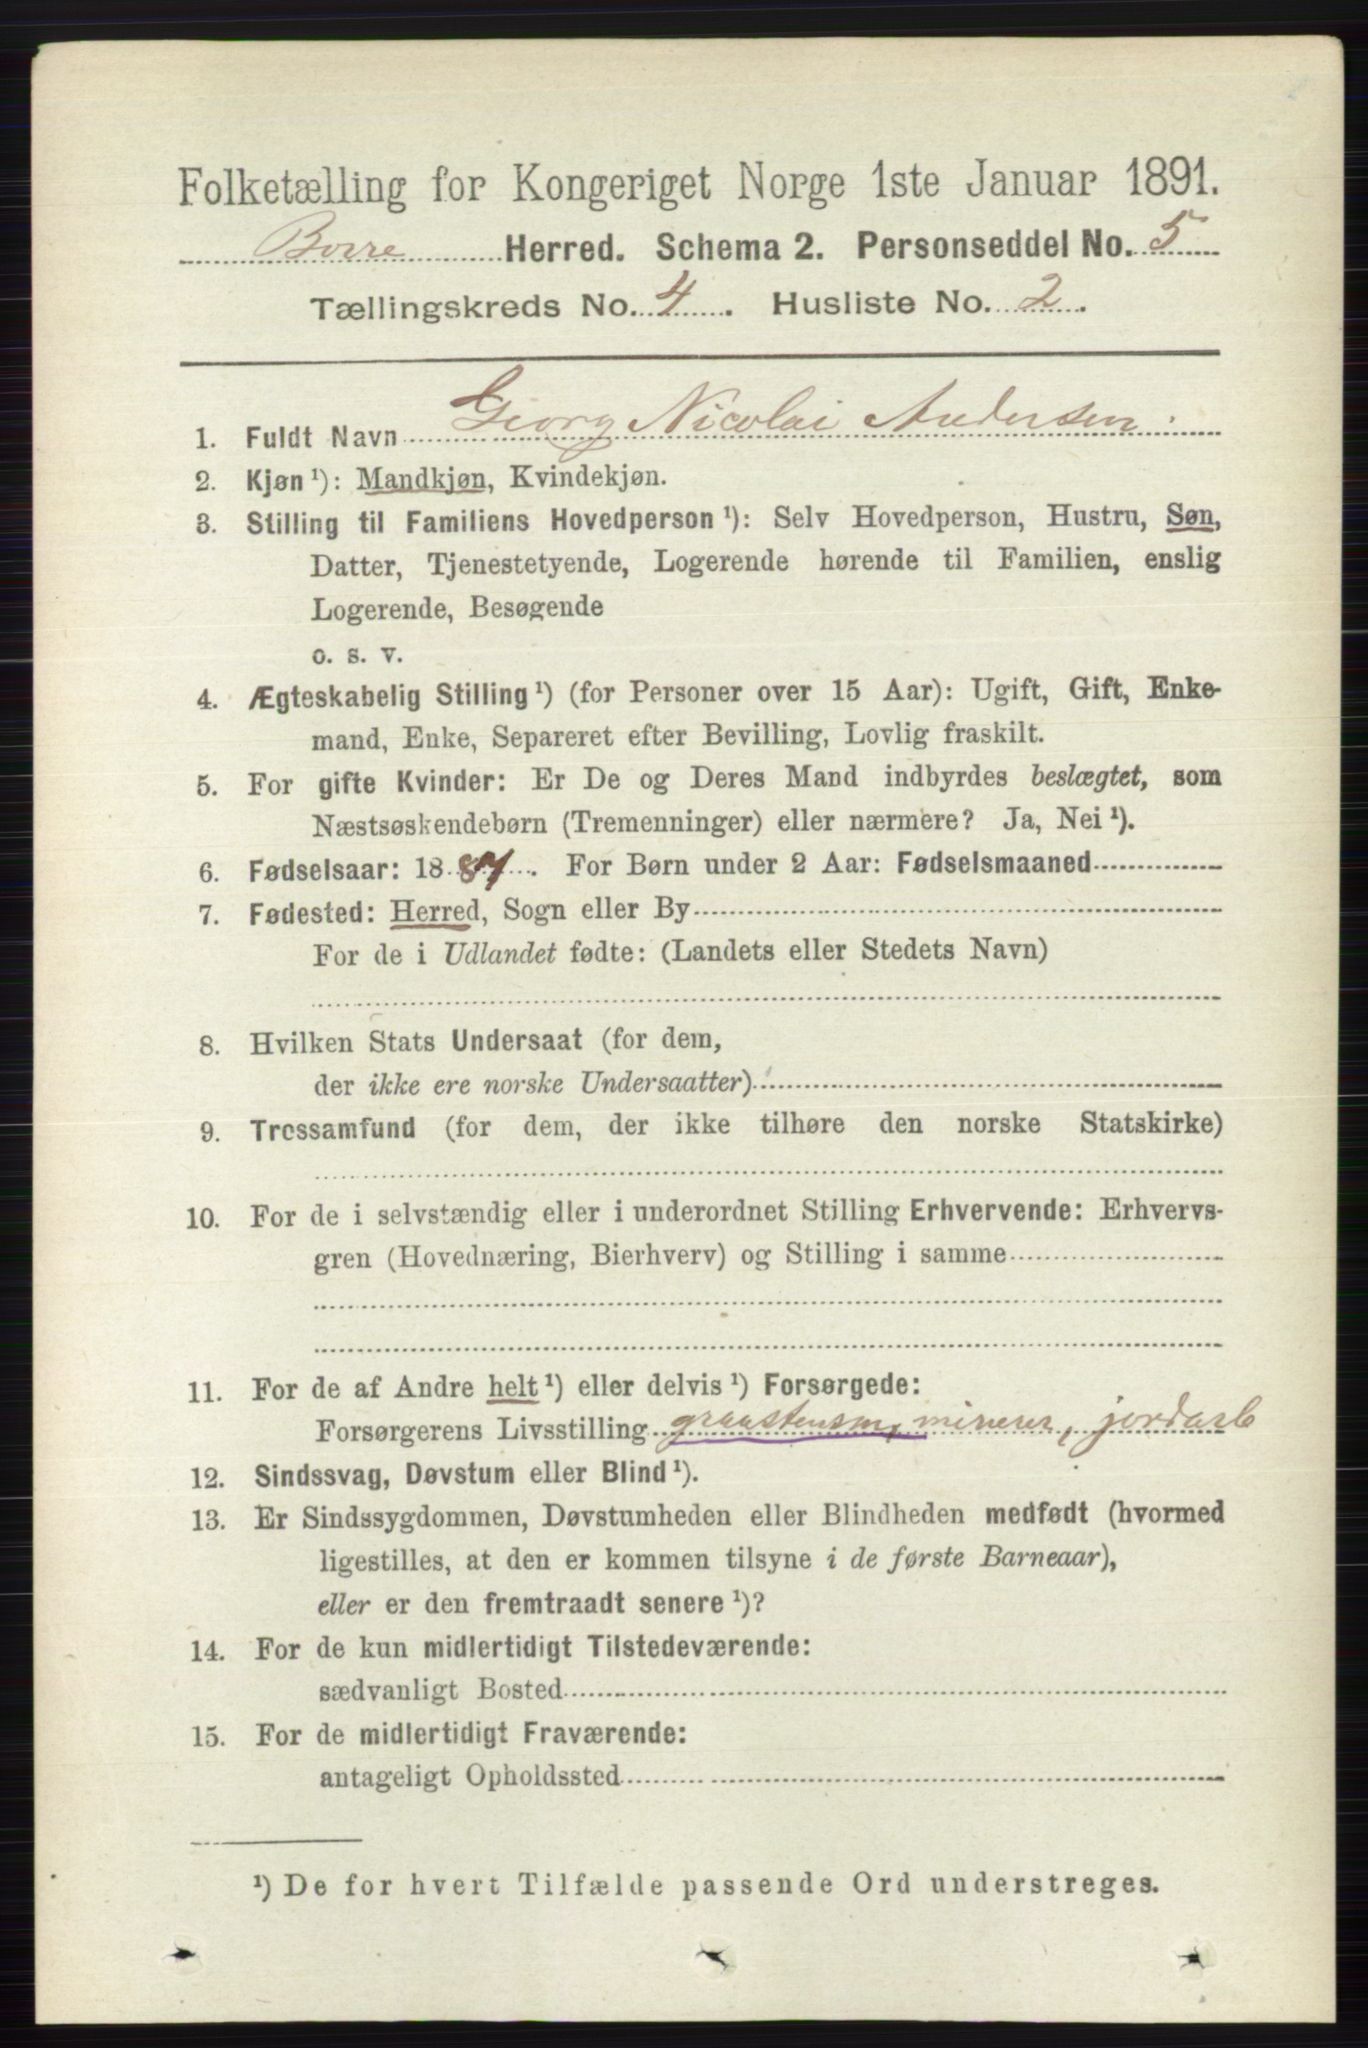 Folketælling for Kongeriget Norge 1ste Januar 1891.
Borre Herred. Schema 2. Personseddel No. 5
Tællingskreds No. 4. Husliste No. 2.
1. Fuldt Navn Georg Nicolai Andersen.
2. Kjøn ¹): Mandkjøn, Kvindekjøn.
3. Stilling til Familiens Hovedperson ¹): Selv Hovedperson, Hustru, Søn,
Datter, Tjenestetyende, Logerende hørende til Familien, enslig
Logerende, Besøgende
o. s. v.
4. Ægteskabelig Stilling ¹) (for Personer over 15 Aar): Ugift, Gift, Enke-
mand, Enke, Separeret efter Bevilling, Lovlig fraskilt.
5. For gifte Kvinder: Er De og Deres Mand indbyrdes beslægtet, som
Næstsøskendebørn (Tremenninger) eller nærmere? Ja, Nei ¹).
6. Fødselsaar: 1887. For Børn under 2 Aar: Fødselsmaaned
7. Fødested: Herred, Sogn eller By
For de i Udlandet fødte: (Landets eller Stedets Navn)
8. Hvilken Stats Undersaat (for dem,
der ikke ere norske Undersaatter)
9. Trossamfund (for dem, der ikke tilhøre den norske Statskirke)
10. For de i selvstændig eller i underordnet Stilling Erhvervende: Erhvervs-
gren (Hovednæring, Bierhverv) og Stilling i samme
11. For de af Andre helt ¹) eller delvis ¹) Forsørgede:
Forsørgerens Livsstilling graastensm, minerer, jordarb
12. Sindssvag, Døvstum eller Blind ¹).
13. Er Sindssygdommen, Døvstumheden eller Blindheden medfødt (hvormed
ligestilles, at den er kommen tilsyne i de første Barneaar),
eller er den fremtraadt senere ¹)?
14. For de kun midlertidigt Tilstedeværende:
sædvanligt Bosted
15. For de midlertidigt Fraværende:
antageligt Opholdssted
¹) De for hvert Tilfælde passende Ord understreges.